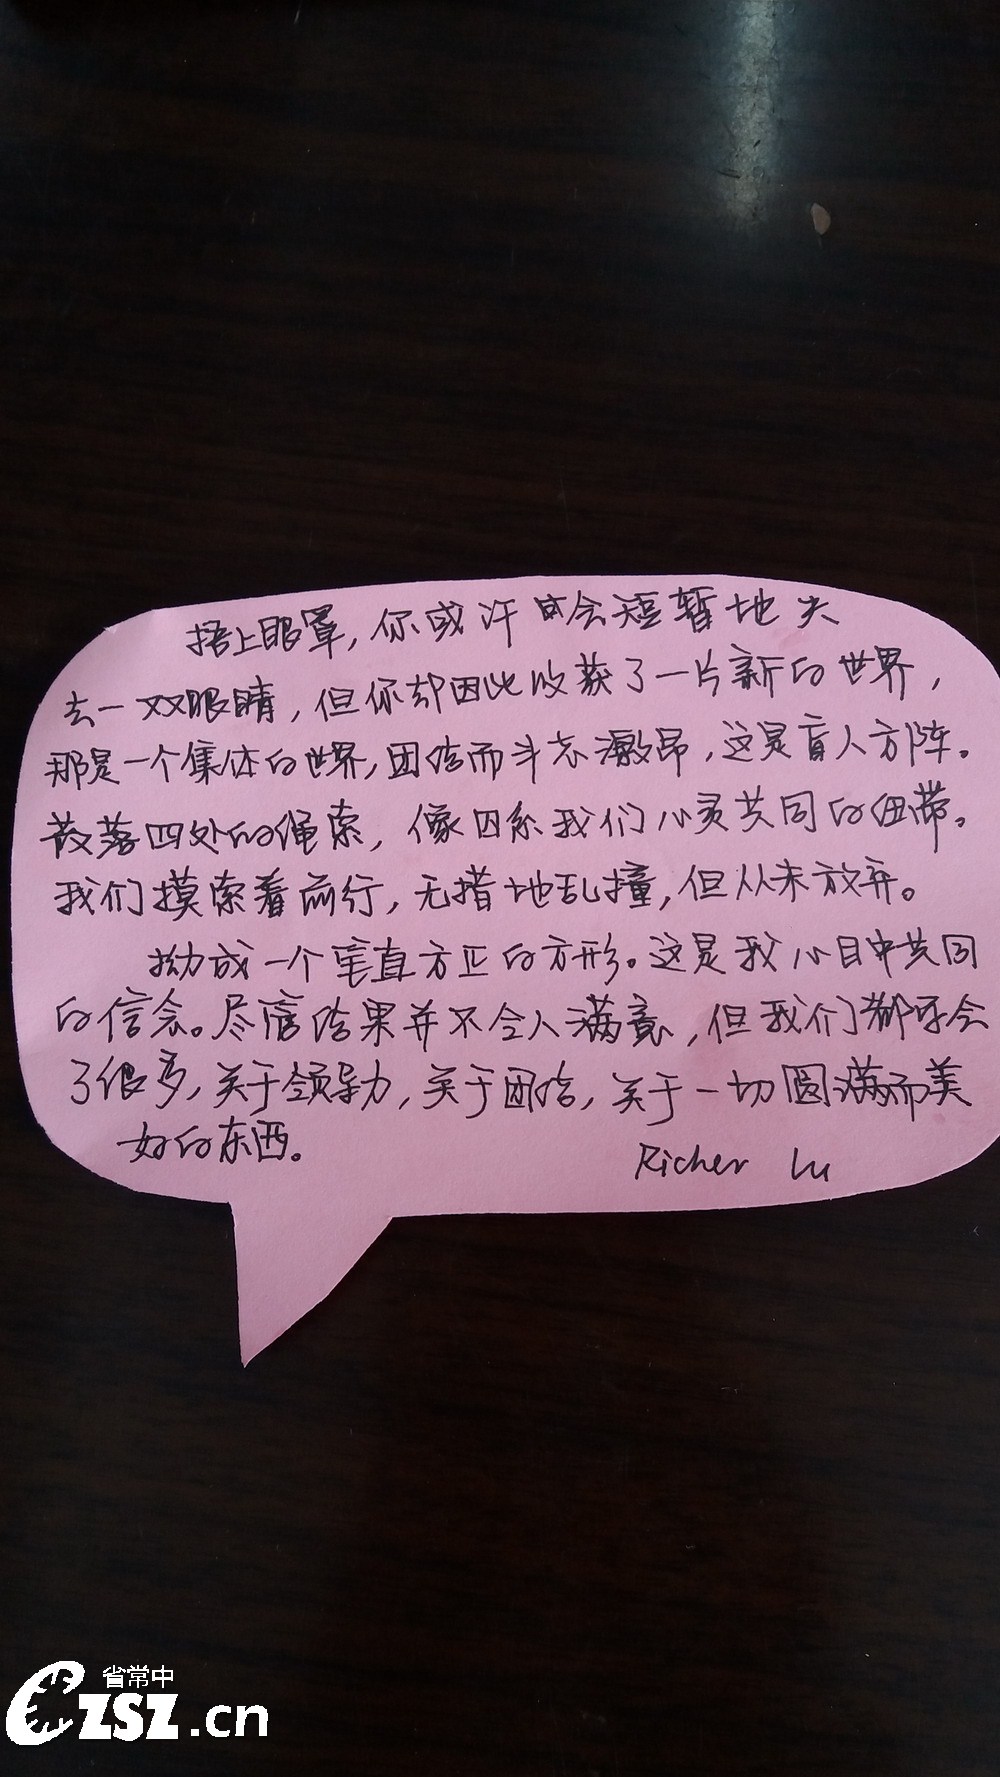 捂上眼罩，你或许会短暂地失
去一双眼睛，但你却因此收获了一片新的世界，
那是一个集体的世界，团结而斗志激昂，这是盲人方阵。
散落四处的绳索，像因系我们心灵共同的纽带。
我们摸索着前行，无措地乱撞，但从未放弃。
拗成一个垂直方正的方形。这是我心目中共同
的信念。尽管结果并不令人满意，但我们都体会
了很多，关于领导力，关于团结，关于一切圆满而美
好的东西。
Richer Lu
省常中
CZSZ.cn